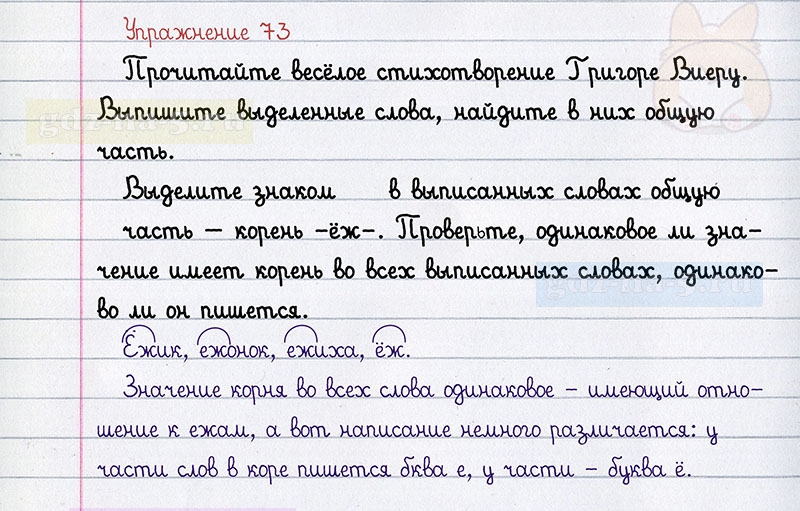 Упражнение 73
Прочитайте весёлое стихотворение Григоре Виеру.
Выпишите выделенные слова, найдите в них общую
часть.
Выделите знаком в выписанных словах общую
часть — корень -ёж-. Проверьте, одинаковое ли зна-
чение имеет корень во всех выписанных словах, одинако-
во ли он пишется.
Ёжик, ежонок, ежиха, ёж.
Значение корня во всех слова одинаковое - имеющий отно-
шение к ежам, а вот написание немного различается: у
части слов в коре пишется бква е, у части - буква ё.